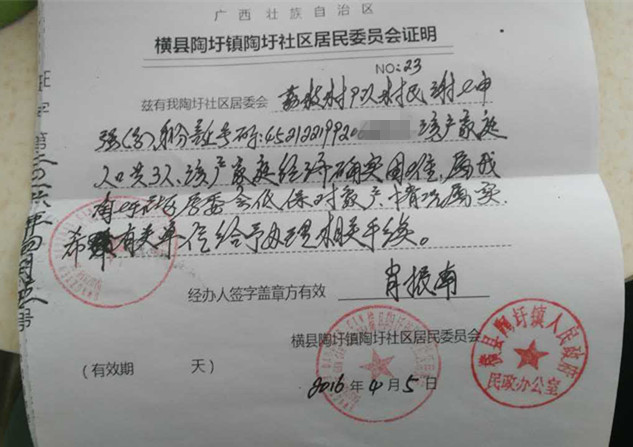 广西壮族自治区
横县陶圩镇陶圩社区居民委员会证明
NO:23
兹有我陶圩社区居委会荔枝村队村民谢
强(男),身份证号码:4521221992 该户家庭
人口共3人,该户家庭经济确实困难,属我
居委会低保对象户,情况属实.
希有关单位给予处理相关手续。
经办人签字盖章方有效 肖振南
横县陶圩镇陶圩社区居民委员会
(有效期 天) 2016年4月5日
横县陶圩镇人民政府
民政办公室